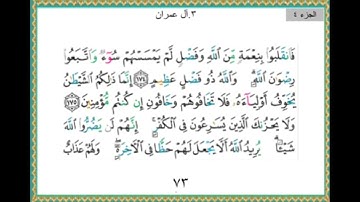 ٣.آل عمران
الجزء ٤
فَانقَلَبُوا۟ بِنِعْمَةٍ مِّنَ ٱللَّهِ وَفَضْلٍ لَّمْ يَمْسَسْهُمْ سُوٓءٌ وَٱتَّبَعُوا۟
رِضْوَٰنَ ٱللَّهِ ۗ وَٱللَّهُ ذُو فَضْلٍ عَظِيمٍ ﴿١٧٤﴾ إِنَّمَا ذَٰلِكُمُ ٱلشَّيْطَٰنُ
يُخَوِّفُ أَوْلِيَآءَهُۥ فَلَا تَخَافُوهُمْ وَخَافُونِ إِن كُنتُم مُّؤْمِنِينَ ﴿١٧٥﴾
وَلَا يَحْزُنكَ ٱلَّذِينَ يُسَٰرِعُونَ فِى ٱلْكُفْرِ ۚ إِنَّهُمْ لَن يَضُرُّوا۟ ٱللَّهَ
شَيْـًٔا ۗ يُرِيدُ ٱللَّهُ أَلَّا يَجْعَلَ لَهُمْ حَظًّا فِى ٱلْءَاخِرَةِ ۖ وَلَهُمْ عَذَابٌ
٧٣